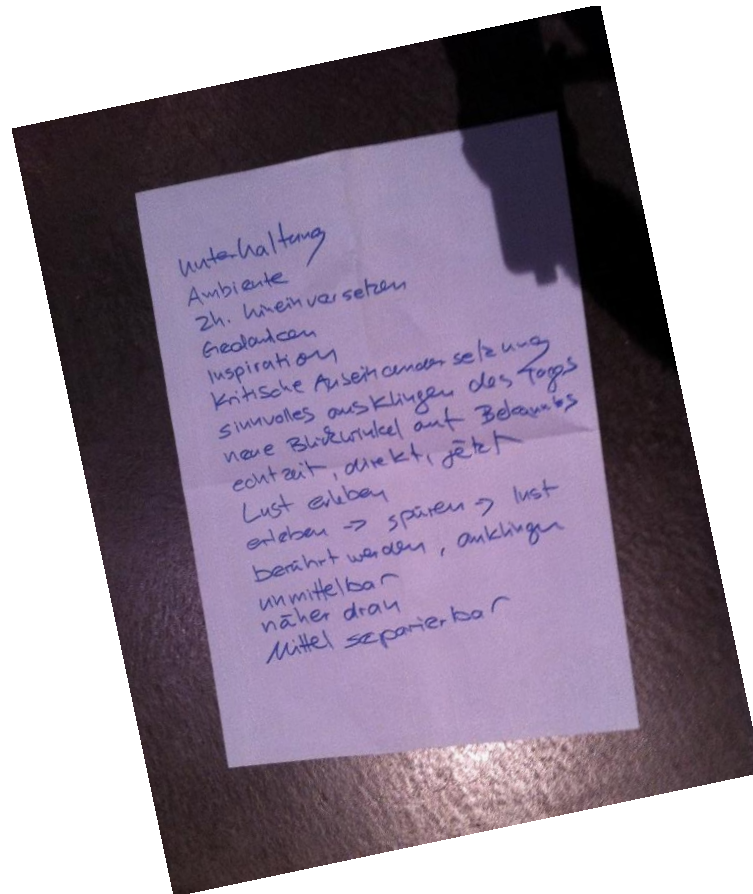 Unterhaltung
Ambiente
2h. hineinversetzen
Gedanken
Inspiration
kritische Auseinandersetzung
sinnvolles ausklingen des Tages
neue Blickwinkel auf Bekanntes
echtzeit, direkt, jetzt
Lust erleben
erleben → spüren → lust
berührt werden, anklingen
unmittelbar
näher dran
Mittel separierbar